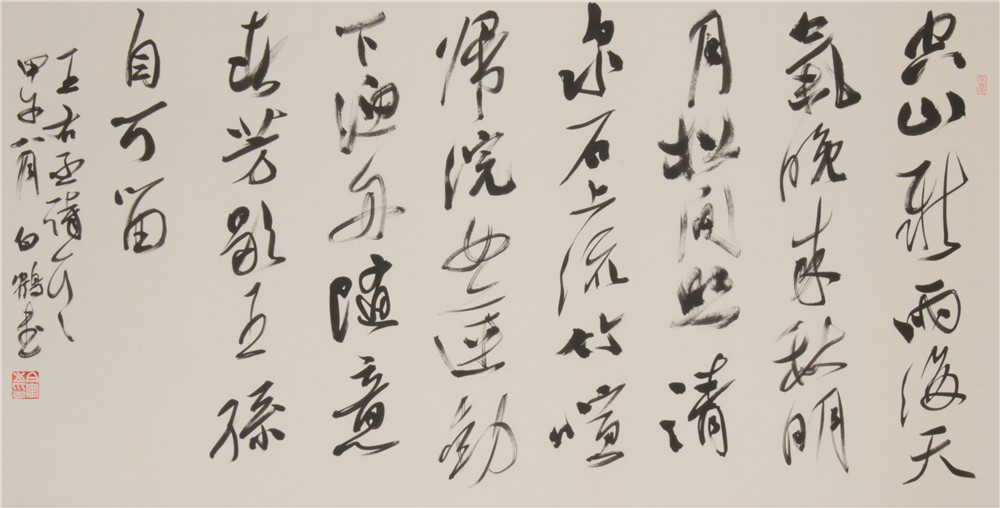 空山新雨後天
氣晚來秋明
月松间照清
泉石上流竹喧
歸浣女蓮動
下漁舟隨意
春芳歇王孫
自可留
王右丞詩
甲午八月白鶴書